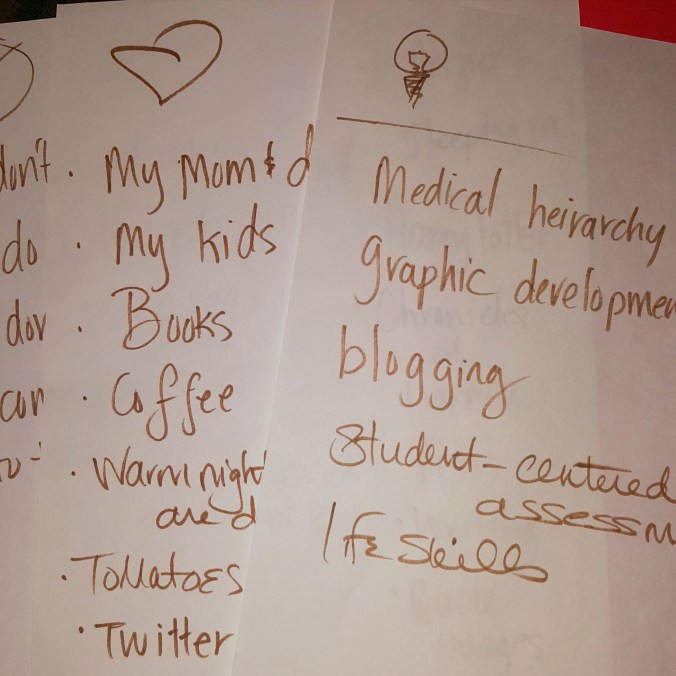 don't
do
· My Mom & d
· My kids
· Books
· Coffee
· Warm night
are d
· Tomatoes
· Twitter
Medical heirarchy
graphic developmen
blogging
Student-centered
assessm
life skills